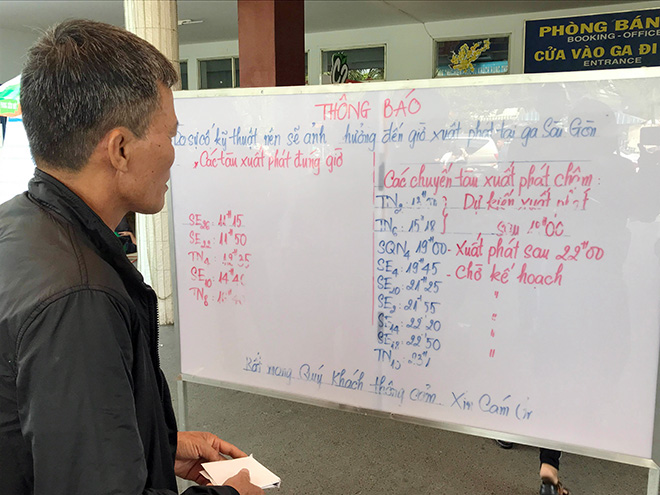 PHÒNG BÁN
BOOKING - OFFICE
CỬA VÀO GA ĐI
ENTRANCE
THÔNG BÁO
Do sự cố kỹ thuật nên sẽ ảnh hưởng đến giờ xuất phát tại ga Sài Gòn
Các tàu xuất phát đúng giờ
SE26 11H15
SE22: 11H50
TN4
SE10: 14H40
TN8
Các chuyến tàu xuất phát chậm:
TN2 Dự kiến xuất phát
TN6: 15H18 sau
SQN4 19H00 - Xuất phát sau 22H00
SE4: 19H45 - Chờ kế hoạch
SE20: 21H25 "
SE2: 21H55 "
SE14: 22H20 "
SE18: 22H50 "
TN10
Rất mong Quý Khách thông cảm. Xin Cám Ơn